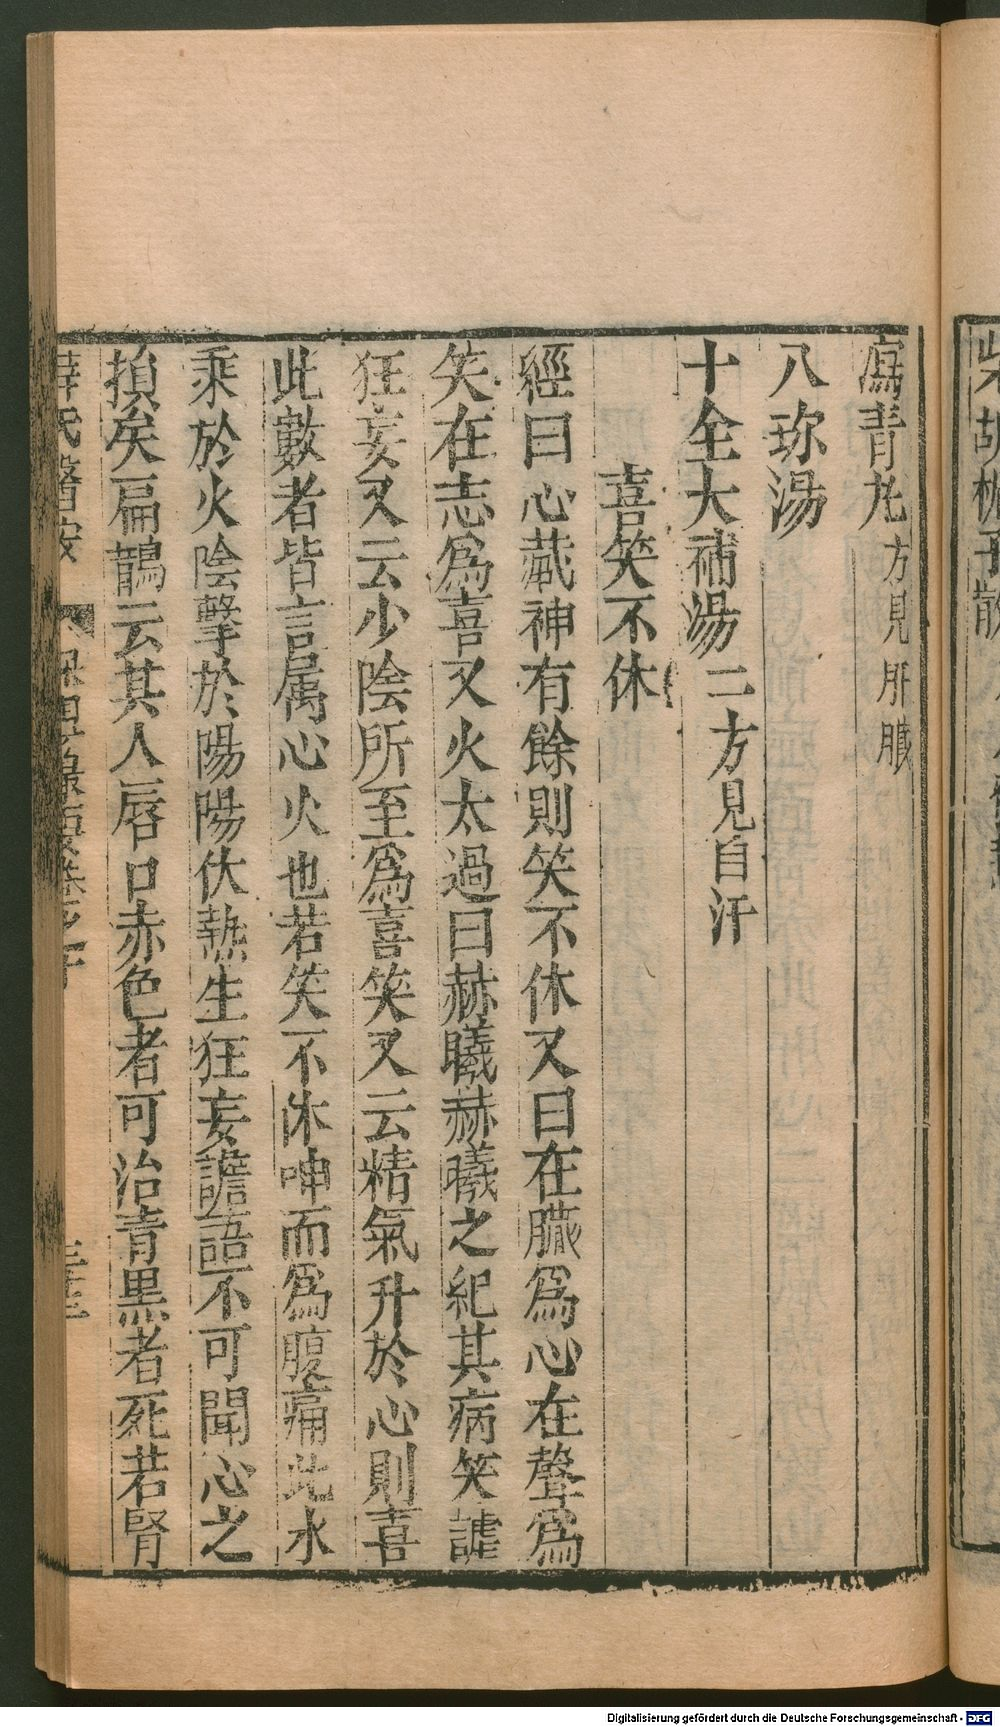 瀉青丸方見肝臟
八珍湯
十全大補湯二方見自汗
喜笑不休
經曰心藏神有餘則笑不休又曰在臟爲心在聲爲
笑在志爲喜又火太過曰赫曦赫曦之紀其病笑謔
狂妄又云少陰所至爲喜笑又云精氣并於心則喜
此數者皆言属心火也若笑不休呻而爲腹痛此水
乘於火陰擊於陽陽伏熱生狂妄譫語不可聞心之
損矣扁鵲云其人唇口赤色者可治青黑者死若腎
薛氏醫按
Digitalisierung gefördert durch die Deutsche Forschungsgemeinschaft - DFG